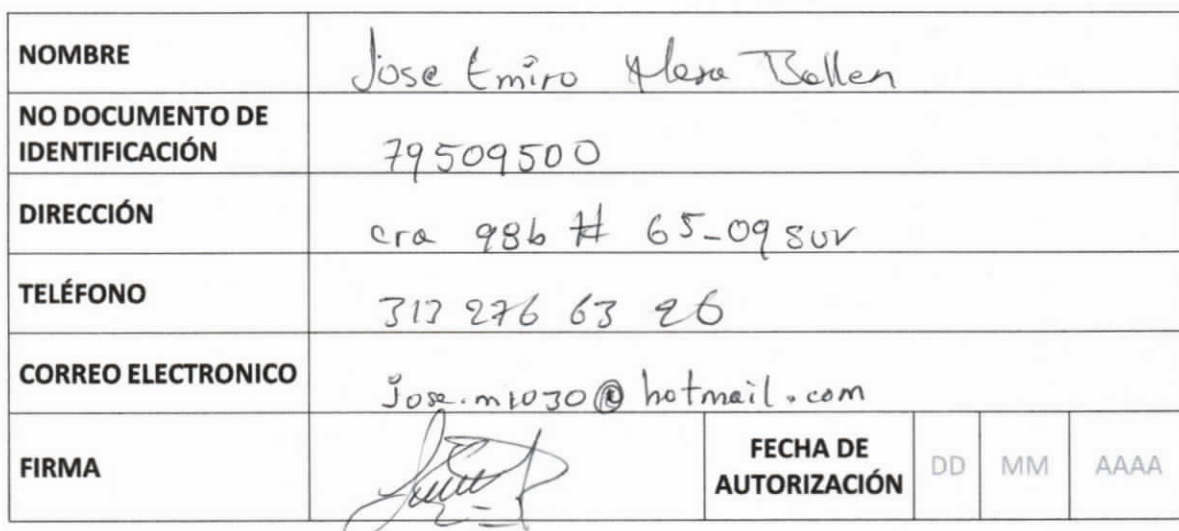 NOMBRE
Jose Emiro Mesa Ballen
NO DOCUMENTO DE
IDENTIFICACIÓN
79509500
DIRECCIÓN
cra 98b # 65-09 sur
TELÉFONO
313 276 63 26
CORREO ELECTRONICO
jose.m1030@hotmail.com
FIRMA
FECHA DE
AUTORIZACIÓN
DD MM AAAA